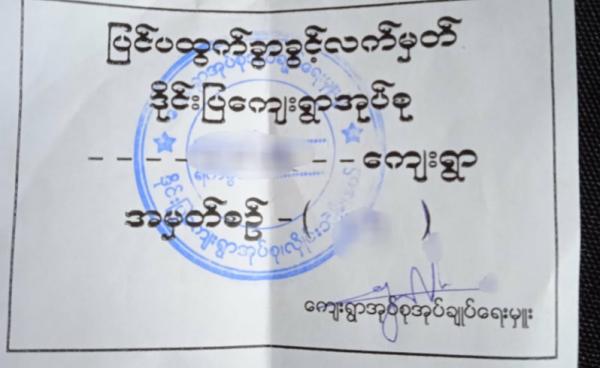 ပြင်ပထွက်ခွာခွင့်လက်မှတ်
ဒိုင်းပြကျေးရွာအုပ်စု
- - - - - - ကျေးရွာ
အမှတ်စဉ် - ( )
ကျေးရွာအုပ်စုအုပ်ချုပ်ရေးမှူး